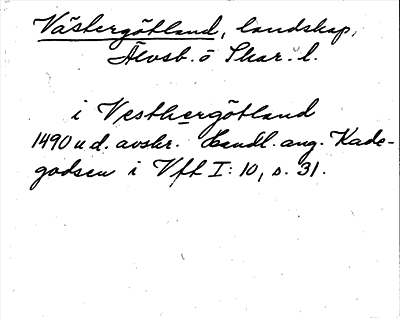 Västergötland, landskap,
Älvsb. o Skar. l.
i Vesthergötland
1490 u d. avskr. Handl. ang. Kade-
godsen i Vft I: 10, s. 31.